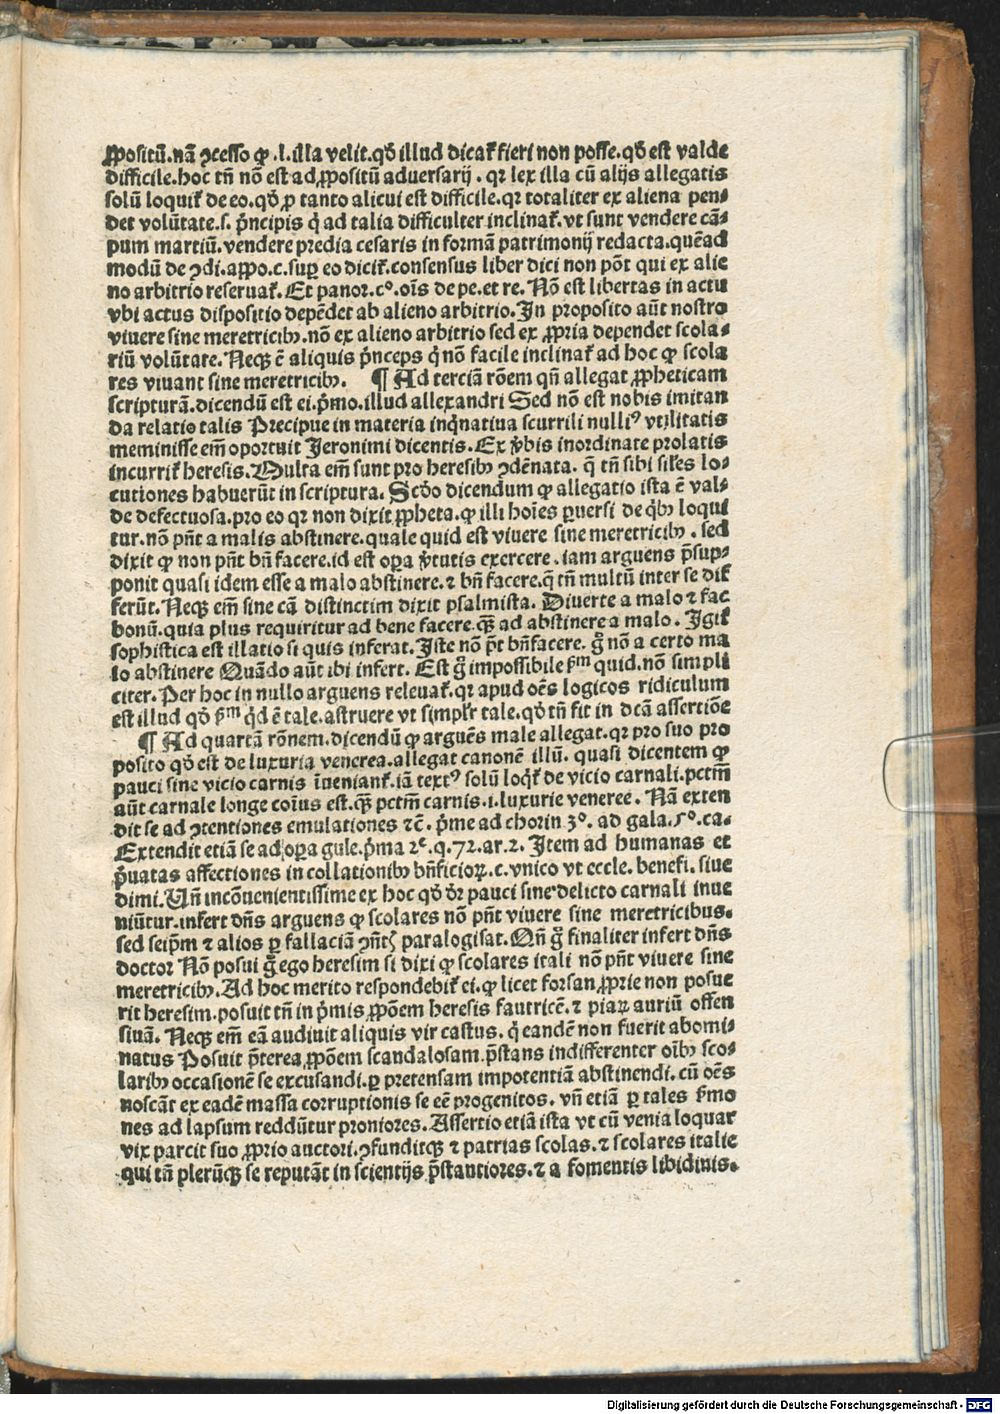 ꝓpositū.nā ꝯcesso ꝙ .l.illa velit.qđ illud dicat᷑ fieri non posse.qđ est valde
difficile.hoc tñ nō est ad ꝓpositū aduersarij . qꝛ lex illa cū alijs allegatis
solū loquit᷑ de eo.qđ ꝓ tanto alicui est difficile.qꝛ totaliter ex aliena pen⸗
det volūtate.s. p̄ncipis q̇ ad talia difficulter inclinat᷑.vt sunt vendere cā⸗
pum martiū.vendere predia cesaris in formā patrimonij redacta.quēad
modū de ꝯdi.appo.c.suꝑ eo dicit᷑.consensus liber dici non pōt qui ex alie
no arbitrio reseruat᷑. Et panor.c°.oīs de pe.et re. Nō est libertas in actu
vbi actus dispositio depēdet ab alieno arbitrio. In proposito aūt nostro
viuere sine meretricibꝰ.nō ex alieno arbitrio sed ex ꝓpria dependet scola⸗
riū volūtate. Neqꝫ ē aliquis p̄nceps q̇ nō facile inclinat᷑ ad hoc ꝙ scola
res viuant sine meretricibꝰ. ¶ Ad terciā rōem qñ allegat ꝓpheticam
scripturā.dicendū est ei.p̄mo.illud allexandri Sed non est nobis imitan
da relatio talis Precipue in materia inq̇natiua scurrili nulliꝰ vtilitatis
meminisse em̄ oportuit Jeronimi dicentis. Ex v̄bis inordinate prolatis
incurrit᷑ heresis. Multa em̄ sunt pro heresibꝰ ꝯdēnata. q̄ tñ sibi sil̄es lo⸗
cutiones habuerūt in scriptura. Scđo dicendum ꝙ allegatio ista ē val⸗
de defectuosa.pro eo qꝛ non dixit ꝓpheta.ꝙ illi hoīes ꝑuersi de q̇bꝰ loqui
tur.nō pñt a malis abstinere.quale quid est viuere sine meretricibꝰ . sed
dixit ꝙ non pñt bñ facere.id est oꝑa v̄tutis exercere . iam arguens p̄sup⸗
ponit quasi idem esse a malo abstinere.⁊ bñ facere.q̄ tñ multū inter se dif
ferūt. Neqꝫ em̄ sine cā distinctim dixit psalmista. Diuerte a malo ⁊ fac
bonū.quia plus requiritur ad bene facere.qꝫ̄ ad abstinere a malo . Igit᷑
sophistica est illatio si quis inferat. Iste nō pōt bñfacere. gͦ nō a certo ma
lo abstinere Quādo aūt ibi infert. Est gͦ impossibile ẜm quid.nō simpli
citer. Per hoc in nullo arguens releuat᷑.qꝛ apud oēs logicos ridiculum
est illud qđ ẜm q̇d ē tale.astruere vt simplr̄ tale.qđ tñ fit in dcā assertiōe
¶ Ad quartā rōnem.dicendū ꝙ arguēs male allegat.qꝛ pro suo pro
posito qđ est de luxuria venerea.allegat canonē illū. quasi dicentem ꝙ
pauci sine vicio carnis īueniant᷑.iā textꝰ solū loq̇t᷑ de vicio carnali.pctm̄
aūt carnale longe coīus est.qꝫ̄ pctm̄ carnis.i.luxurie veneree. Nā exten
dit se ad ꝯtentiones emulationes ⁊c̄. p̄me ad chorin 3°. ad gala.5°.ca.
Extendit etiā se ad oꝑa gule.p̄ma 2ͤ.q.72.ar.2. Item ad humanas et
p̄uatas affectiones in collationibꝰ bñficioꝝ.c.vnico vt eccle. benefi. siue
dimi. Vñ incōuenientissime ex hoc qđ dr̄ pauci sine delicto carnali inue
niūtur.infert dñs arguens ꝙ scolares nō pñt viuere sine meretricibus.
sed seip̄m ⁊ alios ꝑ fallaciā ꝯñtꝭ paralogisat. Qñ gͦ finaliter infert dñs
doctor Nō posui gͦ ego heresim si dixi ꝙ scolares itali nō pñt viuere sine
meretricibꝰ. Ad hoc merito respondebit᷑ ei.ꝙ licet forsan ꝓprie non posue
rit heresim.posuit tñ in p̄mis ꝓpōem heresis fautricē.⁊ piaꝝ auriū offen
siuā. Neqꝫ em̄ eā audiuit aliquis vir castus. q̇ eandē non fuerit abomi⸗
natus Posuit p̄terea ꝓpōem scandalosam.p̄stans indifferenter oībꝰ sco⸗
laribꝰ occasionē se excusandi.ꝑ pretensam impotentiā abstinendi.cū oēs
noscāt ex eadē massa corruptionis se eē progenitos. vñ etiā ꝑ tales ẜmo
nes ad lapsum reddūtur proniores. Assertio etiā ista vt cū venia loquar
vix parcit suo ꝓprio auctori.ꝯfunditqꝫ ⁊ patrias scolas.⁊ scolares italie
qui tñ plerūqꝫ se reputāt in scientijs p̄stantiores.⁊ a fomentis libidinis.
Digitalisierung gefördert durch die Deutsche Forschungsgemeinschaft - DFG